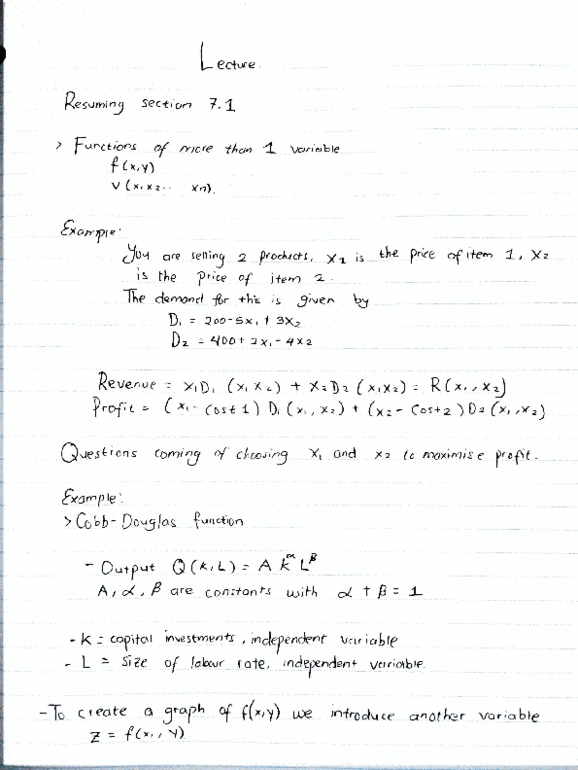 Lecture.
Resuming section 7.1
> Functions of more than 1 variable
f(x,y)
v(x₁x₂.. xn).
Example:
You are selling 2 products, x₁ is the price of item 1, x₂
is the price of item 2.
The demand for this is given by
D₁ = 200-5x₁ + 3x₂
D₂ = 400+2x₁-4x₂
Revenue = x₁D₁ (x₁x₂) + x₂D₂ (x₁x₂) = R(x₁,x₂)
Profit = (x₁- Cost 1) D₁ (x₁,x₂) + (x₂- Cost 2) D₂ (x₁,x₂)
Questions coming of choosing x₁ and x₂ to maximise profit.
Example:
> Cobb-Douglas function
- Output Q(K,L) = A K^α L^β
A, α, β are constants with α + β = 1
- K = capital investments, independent variable
- L = size of labour rate, independent variable
- To create a graph of f(x,y) we introduce another variable
z = f(x,,y)